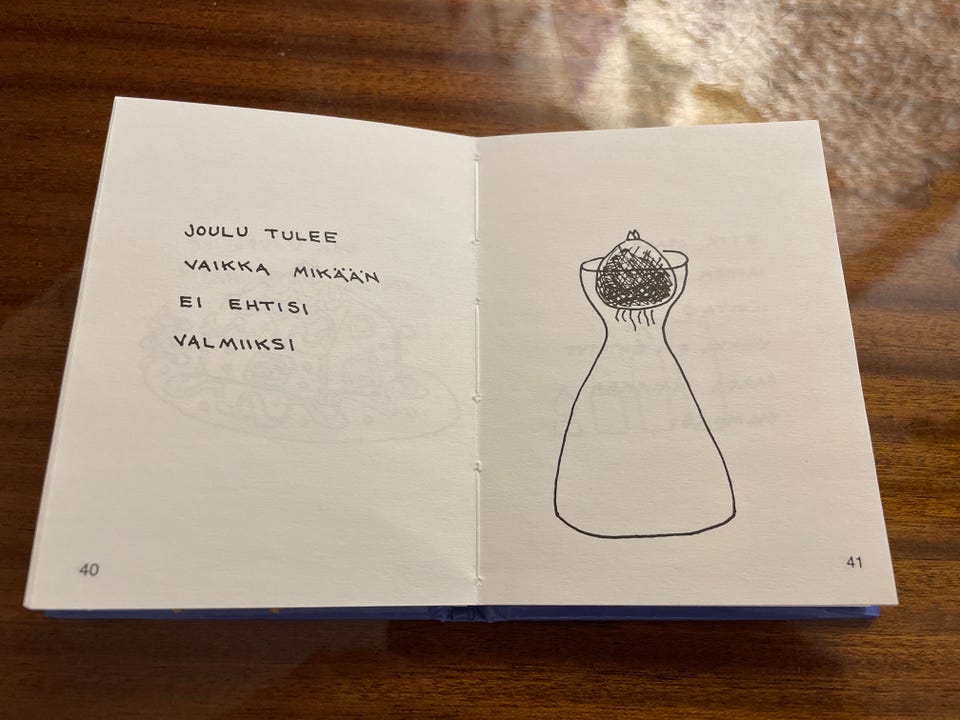 JOULU TULEE
VAIKKA MIKÄÄN
EI EHTISI
VALMIIKSI
40
41